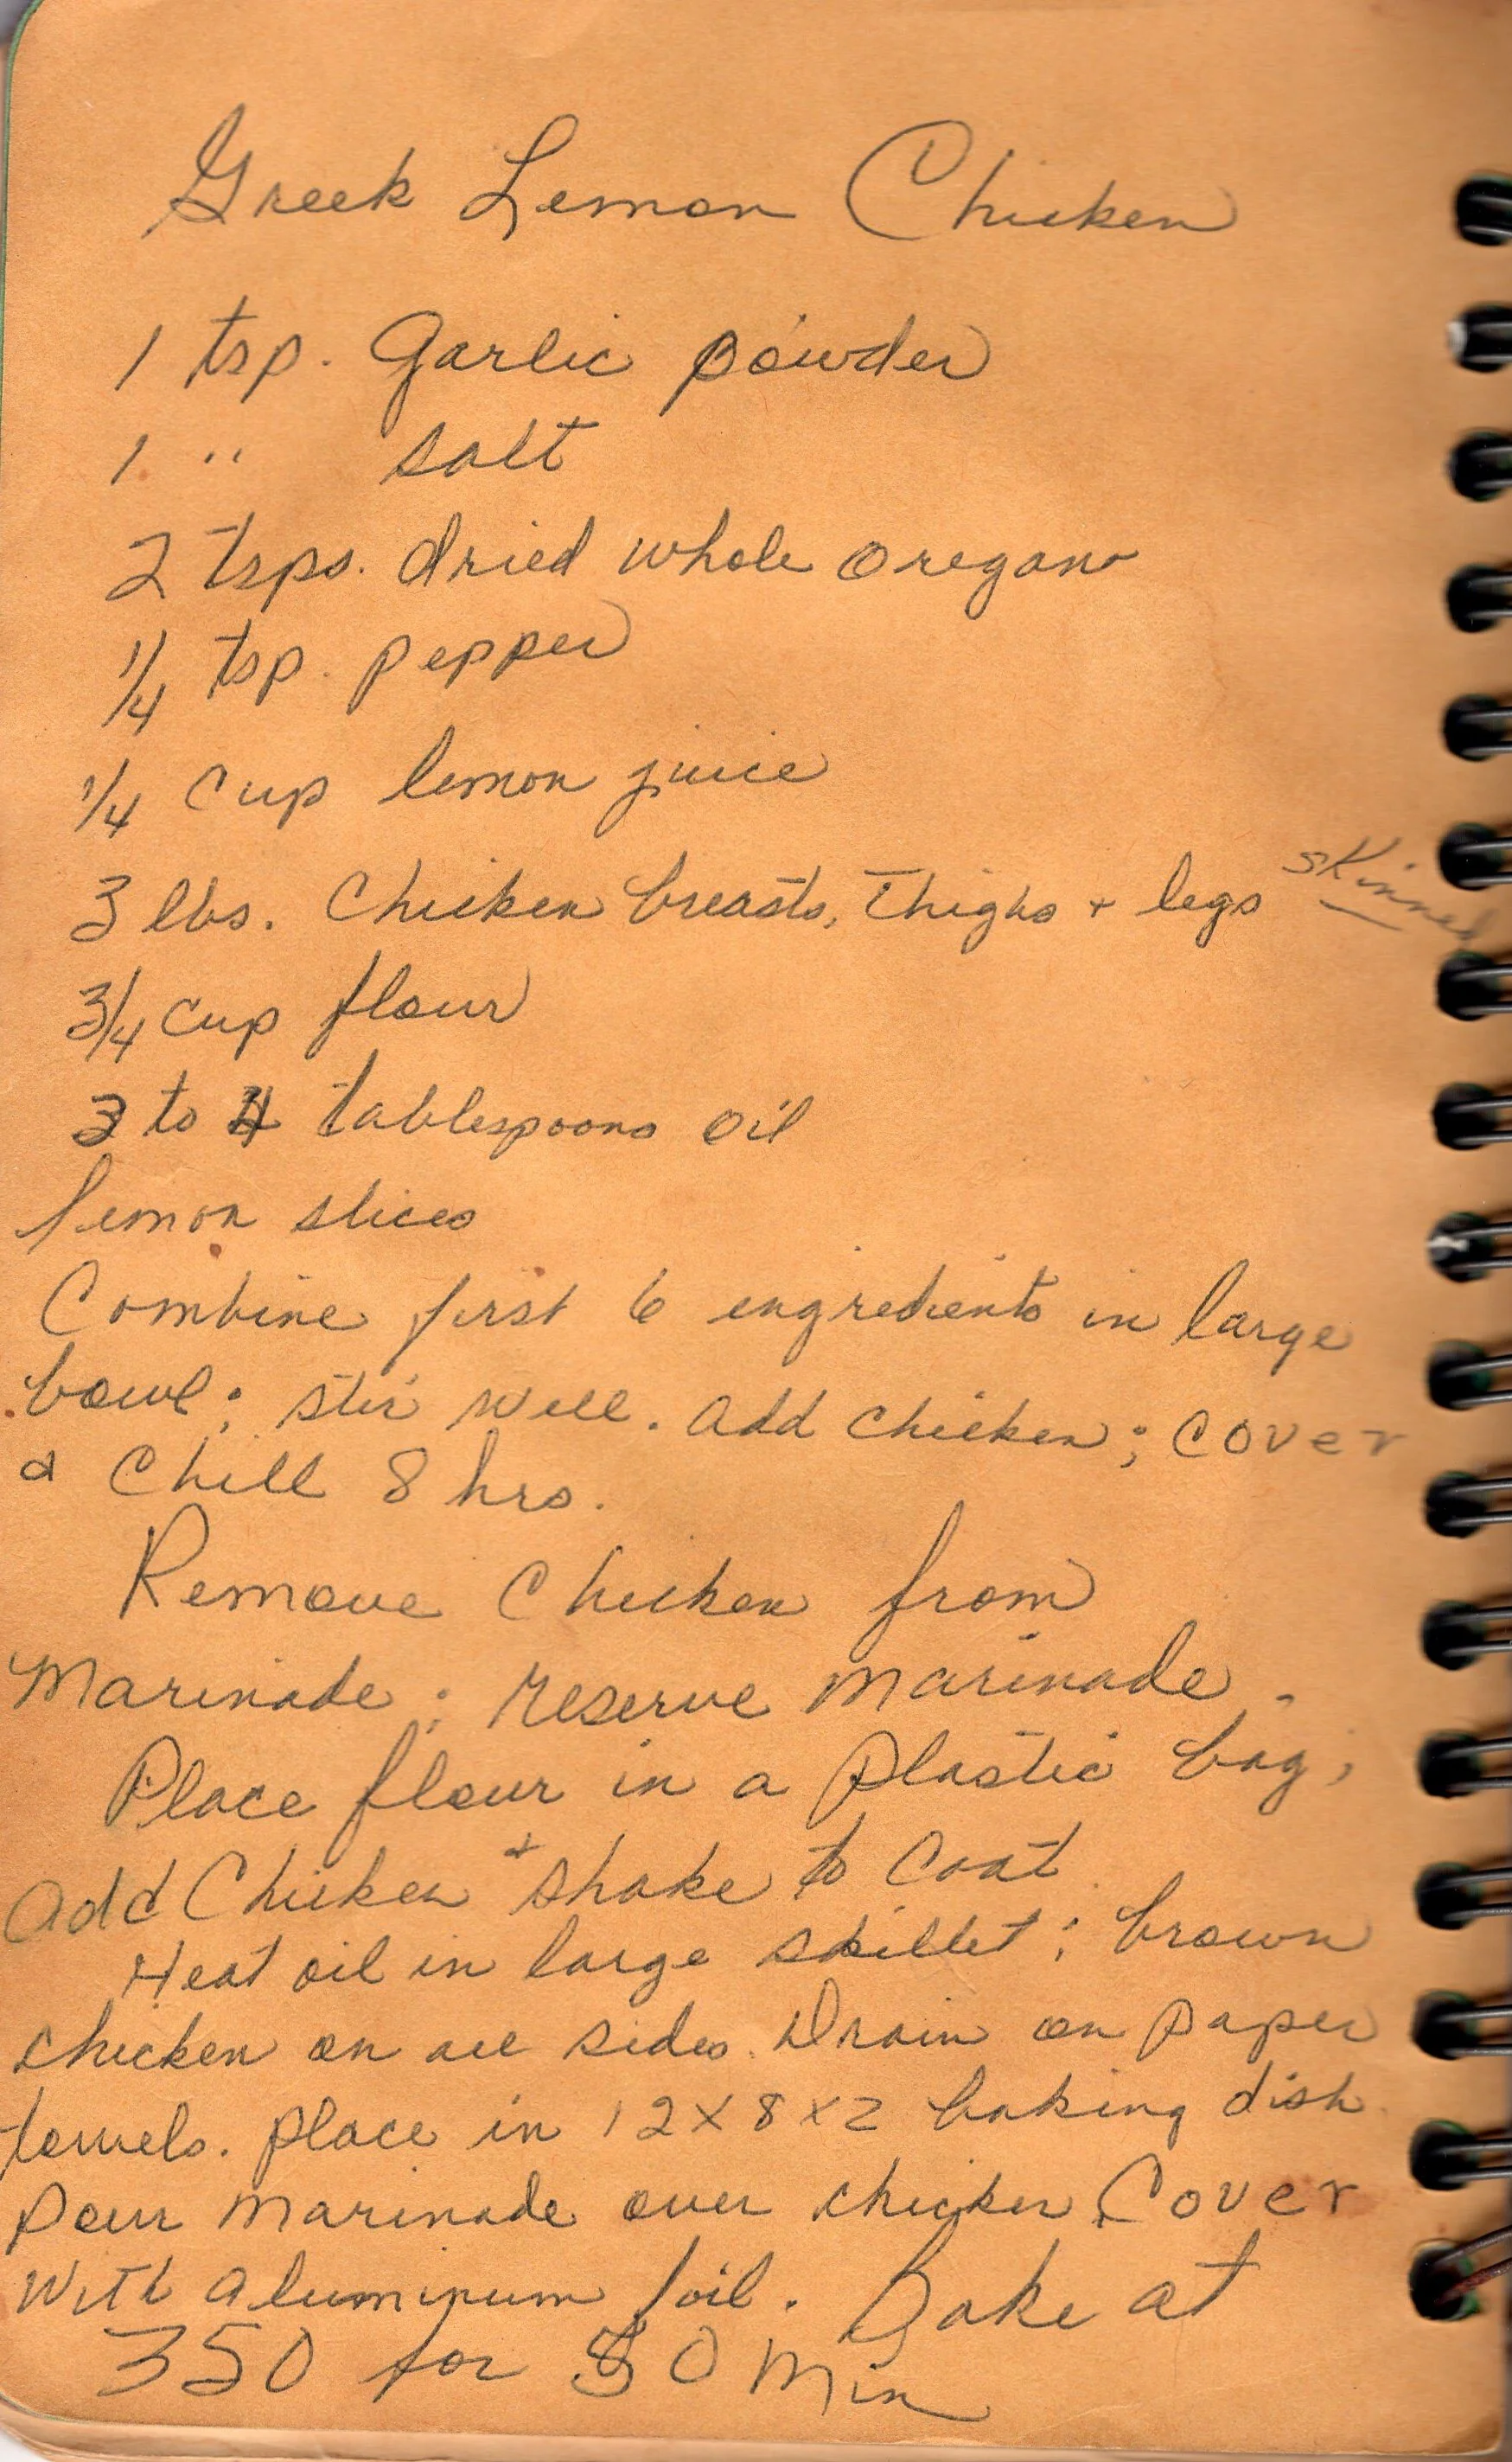 Greek Lemon Chicken
1 tsp. Garlic powder
1 " salt
2 tsps. dried whole oregano
1/4 tsp. pepper
1/4 cup lemon juice
3 lbs. Chicken breasts, thighs + legs skinned
3/4 cup flour
3 to 4 tablespoons oil
lemon slices
Combine first 6 ingredients in large
bowl; stir well. Add chicken; cover
& chill 8 hrs.
Remove Chicken from
Marinade; reserve marinade.
Place flour in a plastic bag;
Add Chicken + shake to coat.
Heat oil in large skillet; brown
chicken on all sides. Drain on paper
towels. place in 12x8x2 baking dish.
Pour marinade over chicken. Cover
with aluminum foil. Bake at
350 for 50 min